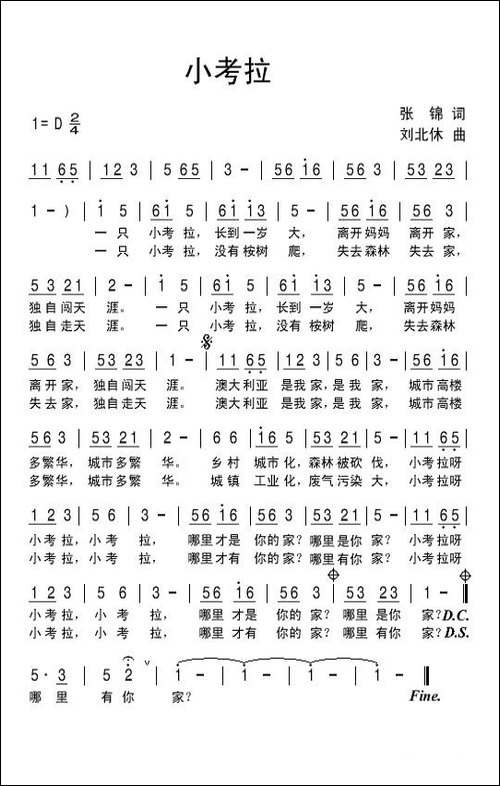 小考拉
1=D 2/4
张 锦 词
刘北休 曲
1 1 6 5 | 1 2 3 | 5 6 5 | 3 - | 5 6 1 6 | 5 6 3 | 5 3 2 3 |
1 - ) | 1 5 | 6 1 5 | 6 1 1 3 | 5 - | 5 6 1 6 | 5 6 3 |
一 只 小考 拉, 长到一岁 大, 离开妈妈 离开 家,
一 只 小考 拉, 没有桉树 爬, 失去森林 失去 家,
5 3 2 1 | 2 - | 1 5 | 6 1 5 | 6 1 1 3 | 5 - | 5 6 1 6 |
独自闯天 涯。 一 只 小考 拉, 长到一岁 大, 离开妈妈
独自走天 涯。 一 只 小考 拉, 没有桉树 爬, 失去森林
5 6 3 | 5 3 2 3 | 1 - | 1 1 6 5 | 1 2 3 | 5 6 3 | 5 6 1 6 |
离开 家, 独自闯天 涯。 澳大利亚 是我 家, 是我 家, 城市高楼
失去 家, 独自走天 涯。 澳大利亚 是我 家, 是我 家, 城市高楼
5 6 3 | 5 3 2 1 | 2 - | 6 6 | 1 6 5 | 5 3 2 1 | 2 - | 1 1 6 5 |
多繁 华, 城市多繁 华。 乡 村 城市 化, 森林被砍 伐, 小考拉呀
多繁 华, 城市多繁 华。 城 镇 工业 化, 废气污染 大, 小考拉呀
1 2 3 | 5 6 | 3 - | 5 6 1 6 | 5 6 3 | 5 3 2 1 | 5 - | 1 1 6 5 |
小考 拉, 小 考 拉, 哪里才是 你的 家? 哪里是你 家? 小考拉呀
小考 拉, 小 考 拉, 哪里才有 你的 家? 哪里有你 家? 小考拉呀
1 2 3 | 5 6 | 3 - | 5 6 1 6 | 5 6 3 | 5 3 2 3 | 1 - |
小考 拉, 小 考 拉, 哪里才是 你的 家? 哪里是你 家? D.C.
小考 拉, 小 考 拉, 哪里才有 你的 家? 哪里有你 家? D.S.
5 · 3 | 5 2 ∨ | 1 - | 1 - | 1 - | 1 - ‖
哪 里 有 你 家? Fine.